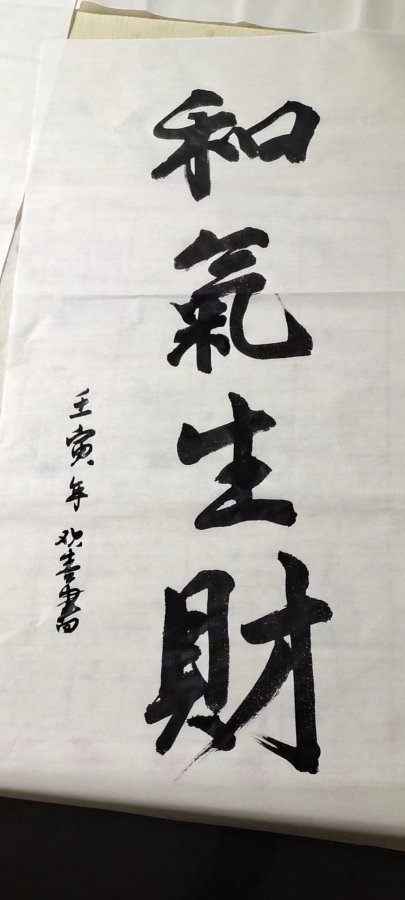 和氣生財
壬寅年 欢喜書